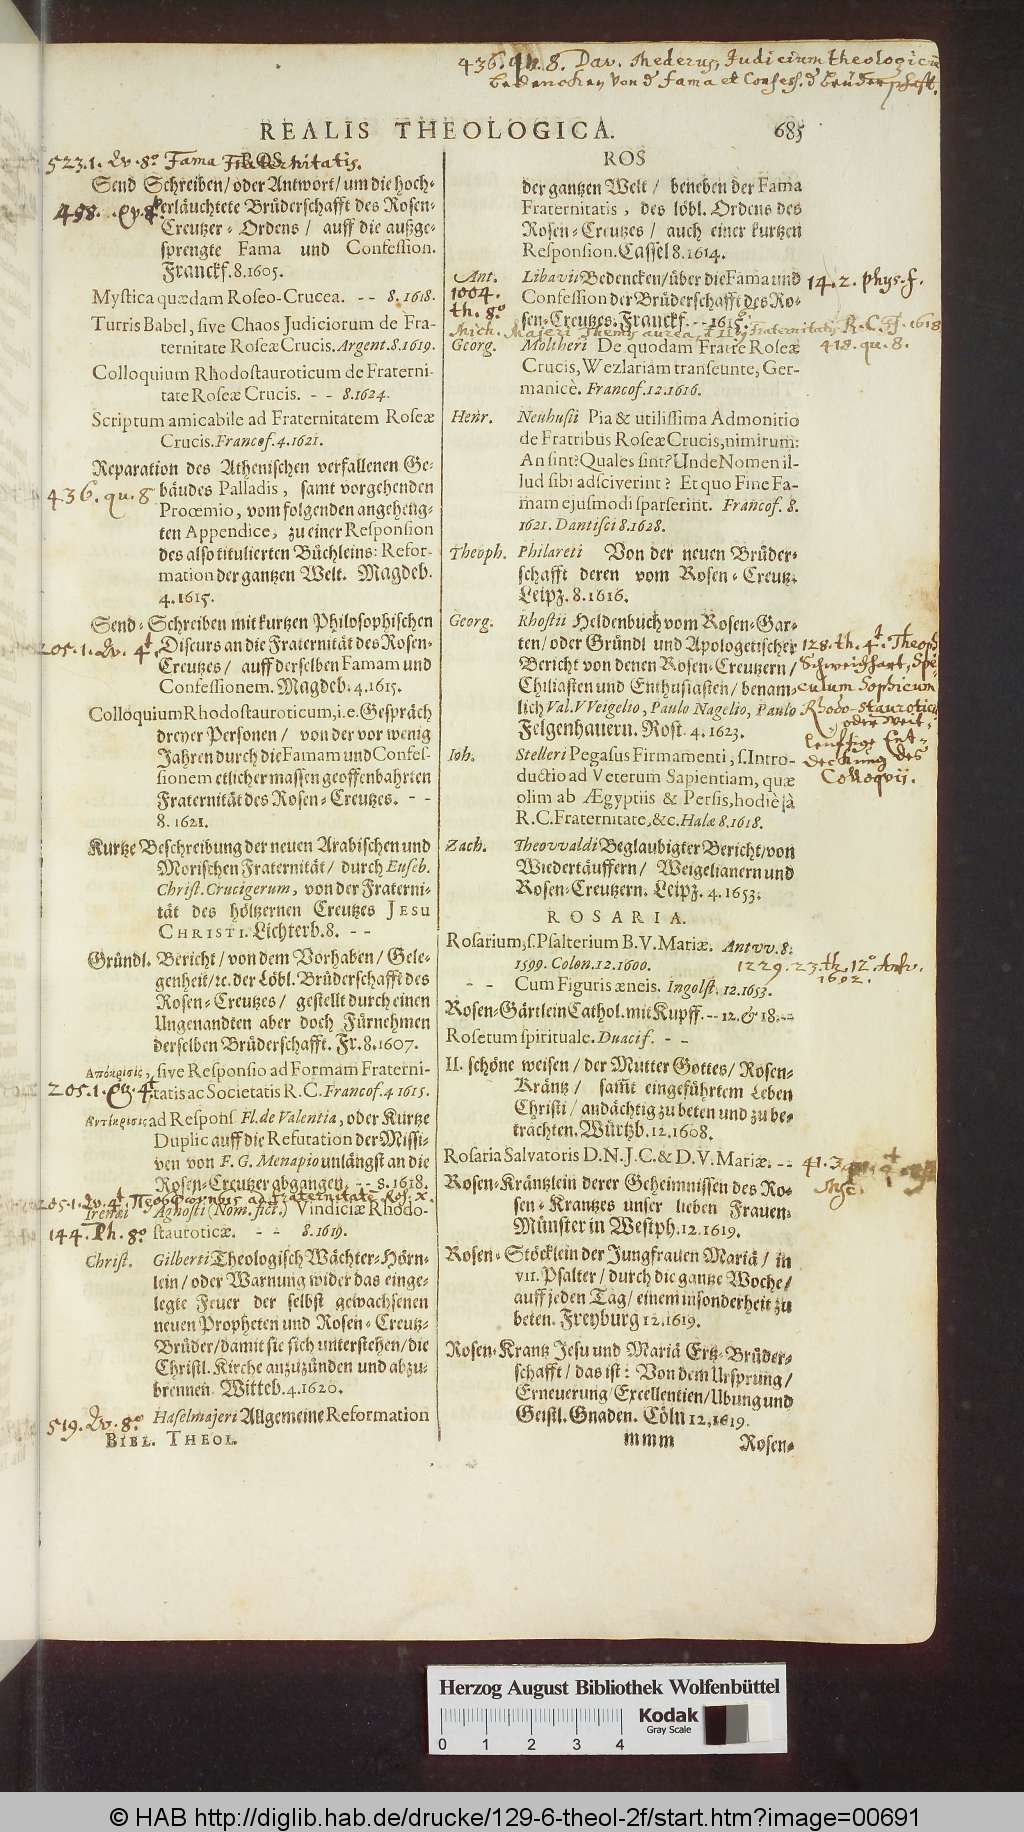 436. qu. 8. Dav. Mederus, Judicium theologicū
bedencken von d' fama et Confess. d' brüderschafft.
REALIS THEOLOGICA. 685
523.1. Qv. 8º Fama Fraternitatis.
ROS
Send Schreiben/oder Antwort/um die hoch-
458. Qv. 8.
erläuchtete Brüderschafft des Rosen-
Creutzer-Ordens/ auff die außge-
sprengte Fama und Confession.
Franckf. 8. 1605.
Mystica quædam Roseo-Crucea. -- 8. 1618.
Turris Babel, sive Chaos Judiciorum de Fra-
ternitate Roseæ Crucis. Argent. 8. 1619.
Colloquium Rhodostauroticum de Fraterni-
tate Roseæ Crucis. -- 8. 1624.
Scriptum amicabile ad Fraternitatem Roseæ
Crucis. Francof. 4. 1621.
Reparation des Athenischen verfallenen Ge-
436. qu. 8
bäudes Palladis, samt vorgehenden
Prooemio, vom folgenden angehengt-
ten Appendice, zu einer Responsion
des also titulierten Büchleins: Refor-
mation der gantzen Welt. Magdeb.
4. 1615.
Send-Schreiben mit kurtzen Philosophischen
205.1. Qv. 4t.
Discurs an die Fraternität des Rosen-
Creutzes/ auff derselben Famam und
Confessionem. Magdeb. 4. 1615.
Colloquium Rhodostauroticum, i.e. Gespräch
dreyer Personen/ von der vor wenig
Jahren durch die Famam und Confes-
sionem etlicher massen geoffenbahrten
Fraternität des Rosen-Creutzes. --
8. 1621.
Kurtze Beschreibung der neuen Arabischen und
Morischen Fraternität/ durch Euseb.
Christ. Crucigerum, von der Fraterni-
tät des höltzernen Creutzes JESU
CHRISTI. Lichterb. 8. --
Gründl. Bericht/ von dem Vorhaben/ Gele-
genheit/ꝛc. der Löbl. Brüderschafft des
Rosen-Creutzes/ gestellt durch einen
Ungenandten aber doch Fürnehmen
derselben Brüderschafft. Fr. 8. 1607.
Απόκρισις, sive Responsio ad Formam Fraterni-
205.1. Qv. 4t
tatis ac Societatis R. C. Francof. 4 1615.
Αντίκρισις ad Respons Fl. de Valentia, oder Kurtze
Duplic auff die Refutation der Missi-
ven von F. G. Menapio unlängst an die
Rosen-Creutzer abgangen. -- 8. 1618.
Irenæi Agnosti (Nom. fict.) Vindiciæ Rhodo-
144. Th. 8º
stauroticæ. -- 8. 1619.
Christ. Gilberti Theologisch Wächter-Hörn-
lein/ oder Warnung wider das einge-
legte Feuer der selbst gewachsenen
neuen Propheten und Rosen-Creutz-
Brüder/damit sie sich unterstehen/die
Christl. Kirche anzuzünden und abzu-
brennen. Witteb. 4. 1620.
519. Qv. 8º
Haselmajeri Allgemeine Reformation
BIBL. THEOL.
ROS
der gantzen Welt/ beneben der Fama
Fraternitatis, des löbl. Ordens des
Rosen-Creutzes/ auch einer kurtzen
Responsion. Cassel 8. 1614.
Ant. Libavii Bedencken/über die Fama und 14.2. phys. f.
1004.
th. 8º
Confession der Brüderschafft des Ro-
sen-Creutzes. Franckf. -- 1615.
Mich. Majeri Themis aurea Fraternitatis R. C. 1618
Georg. Moltheri De quodam Fratre Roseæ 418. qu. 8.
Crucis, Wezlariam transeunte, Ger-
manicè. Francof. 12. 1616.
Henr. Neuhusii Pia & utilissima Admonitio
de Fratribus Roseæ Crucis, nimirum:
An sint? Quales sint? Unde Nomen il-
lud sibi adsciverint? Et quo Fine Fa-
mam ejusmodi sparserint. Francof. 8.
1621. Dantisci 8. 1628.
Theoph. Philareti Von der neuen Brüder-
schafft deren vom Rosen-Creutz.
Leipz. 8. 1616.
Georg. Rhostii Heldenbuch vom Rosen-Gar-
ten/ oder Gründl und Apologetischer
Bericht von denen Rosen-Creutzern/
Chiliasten und Enthusiasten/ benam-
lich Val. VVeigelio, Paulo Nagelio, Paulo
Felgenhauern. Rost. 4. 1623.
128. th. 4t. Theoph
Schweighart, Spe-
culum Sophicum
Rhodo-Stauroticū
oder Weit-
leufftige Ent-
deckung des
Collogvij.
Ioh. Stelleri Pegasus Firmamenti, s. Intro-
ductio ad Veterum Sapientiam, quæ
olim ab Ægyptiis & Persis, hodiè jà
R. C. Fraternitate, &c. Halæ 8. 1618.
Zach. Theovvaldi Beglaubigter Bericht/von
Wiedertäuffern/ Weigelianern und
Rosen-Creutzern. Leipz. 4. 1653.
ROSARIA.
Rosarium, s. Psalterium B. V. Mariæ. Antvv. 8.
1599. Colon. 12. 1600.
1229. 23. th. 12º Antv.
1602.
-- Cum Figuris æneis. Ingolst. 12. 1653.
Rosen-Gärtlein Cathol. mit Kupff. -- 12. & 18. --
Rosetum spirituale. Duacis. --
II. schöne weisen/ der Mutter Gottes/ Rosen-
Kräntz/ sam̃t eingeführtem Leben
Christi/ andächtig zu beten und zu be-
trachten. Würtzb. 12. 1608.
Rosaria Salvatoris D. N. J. C. & D. V. Mariæ. --
Rosen-Kräntzlein derer Geheimnissen des Ro-
sen-Krantzes unser lieben Frauen-
Münster in Westph. 12. 1619.
Rosen-Stöcklein der Jungfrauen Mariä/ in
VII. Psalter/ durch die gantze Woche/
auff jeden Tag/ einem insonderheit zu
beten. Freyburg 12. 1619.
Rosen-Krantz Jesu und Mariä Ertz-Brüder-
schafft/ das ist: Von dem Ursprung/
Erneuerung/ Excellentien/ Übung und
Geistl. Gnaden. Cöln 12. 1619.
mmm Rosen-
Herzog August Bibliothek Wolfenbüttel
Kodak
Gray Scale
0 1 2 3 4
© HAB http://diglib.hab.de/drucke/129-6-theol-2f/start.htm?image=00691